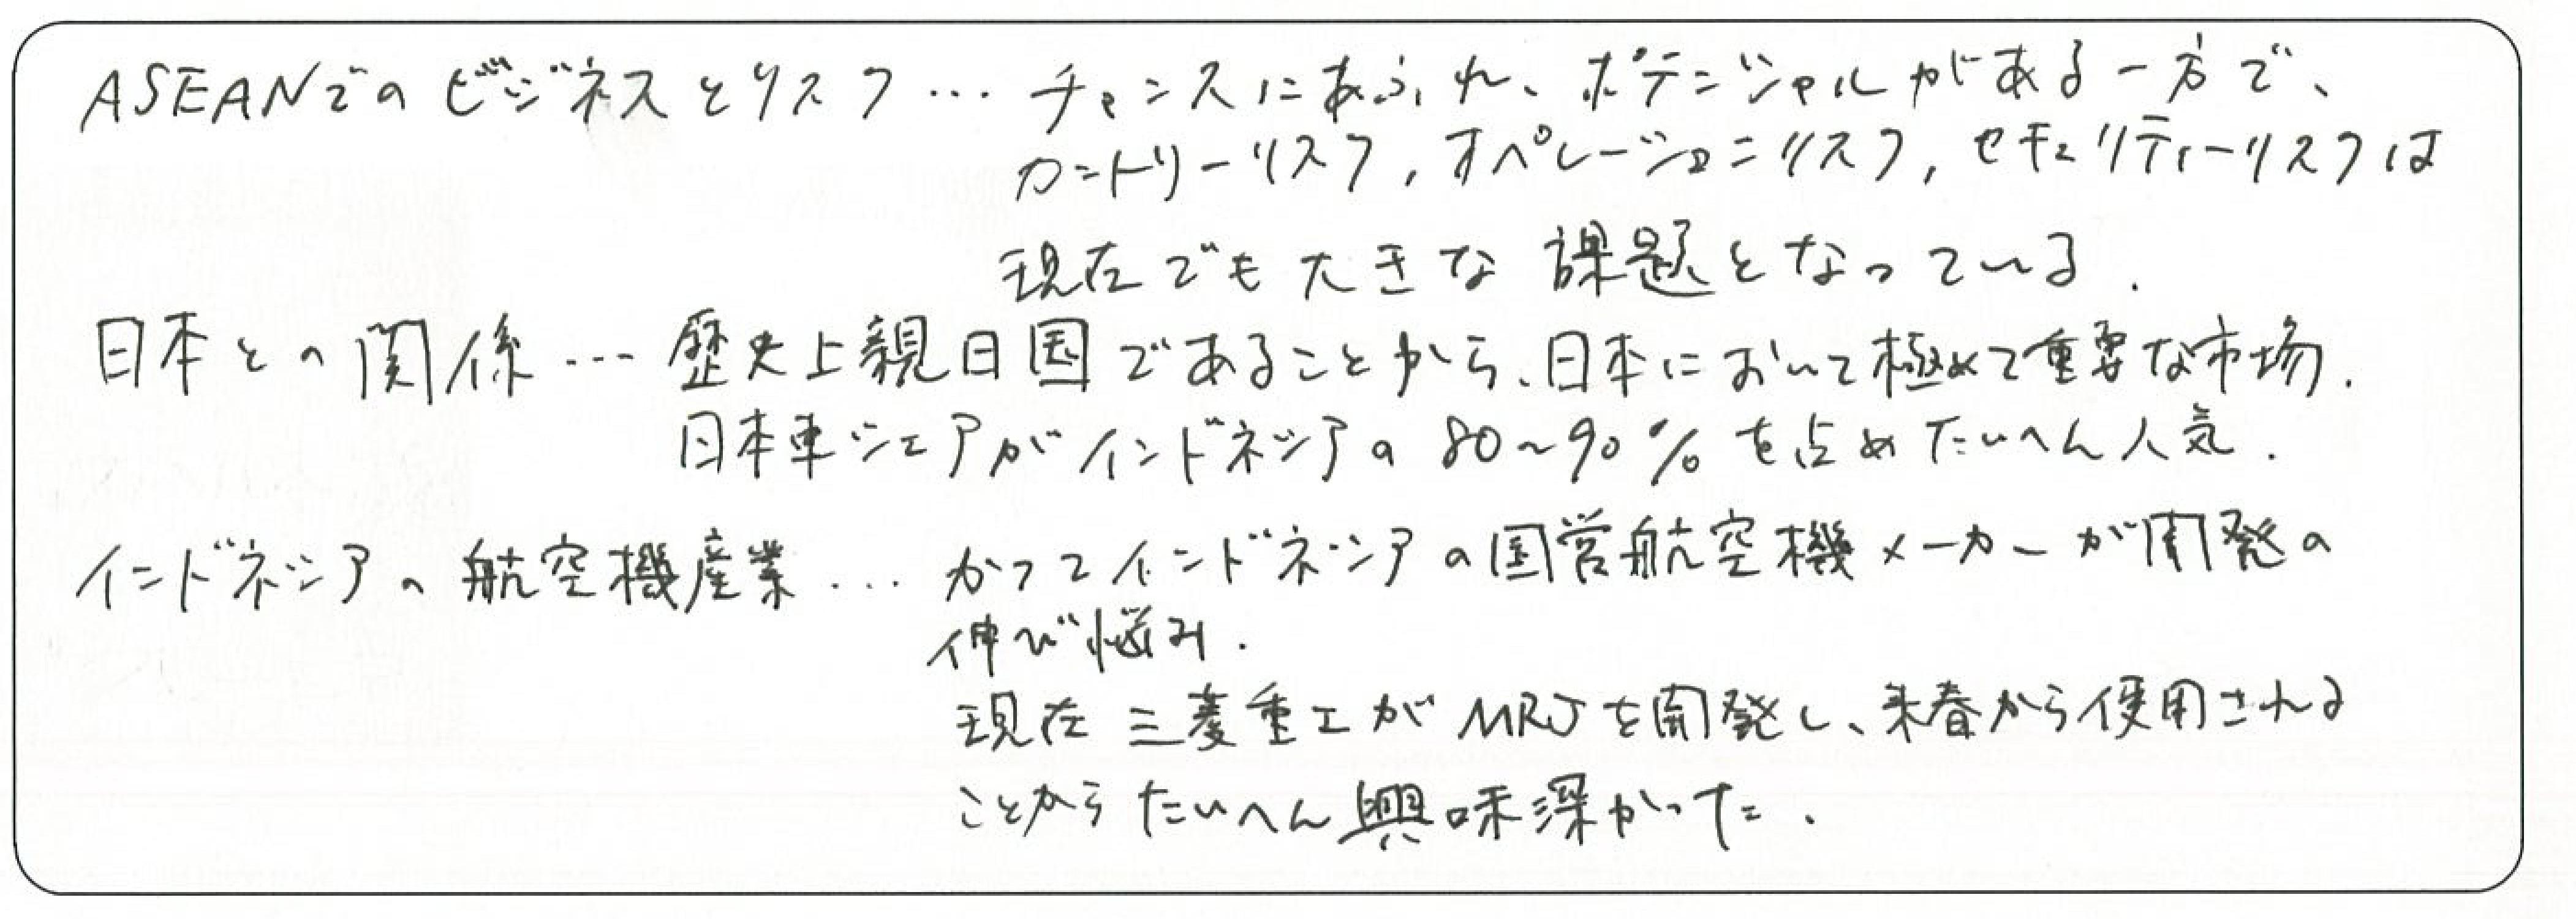 ASEANでのビジネスとリスク… チャンスにあふれ、ポテンシャルがある一方で、
カントリーリスク，オペレーションリスク，セキュリティーリスクは
現在でも大きな課題となっている．
日本との関係… 歴史上親日国であることから、日本において極めて重要な市場．
日本車シェアがインドネシアの80～90%を占めたいへん人気．
インドネシアの航空機産業… かつてインドネシアの国営航空機メーカーが開発の
伸び悩み．
現在三菱重工がMRJを開発し、来春から使用される
ことからたいへん興味深かった．